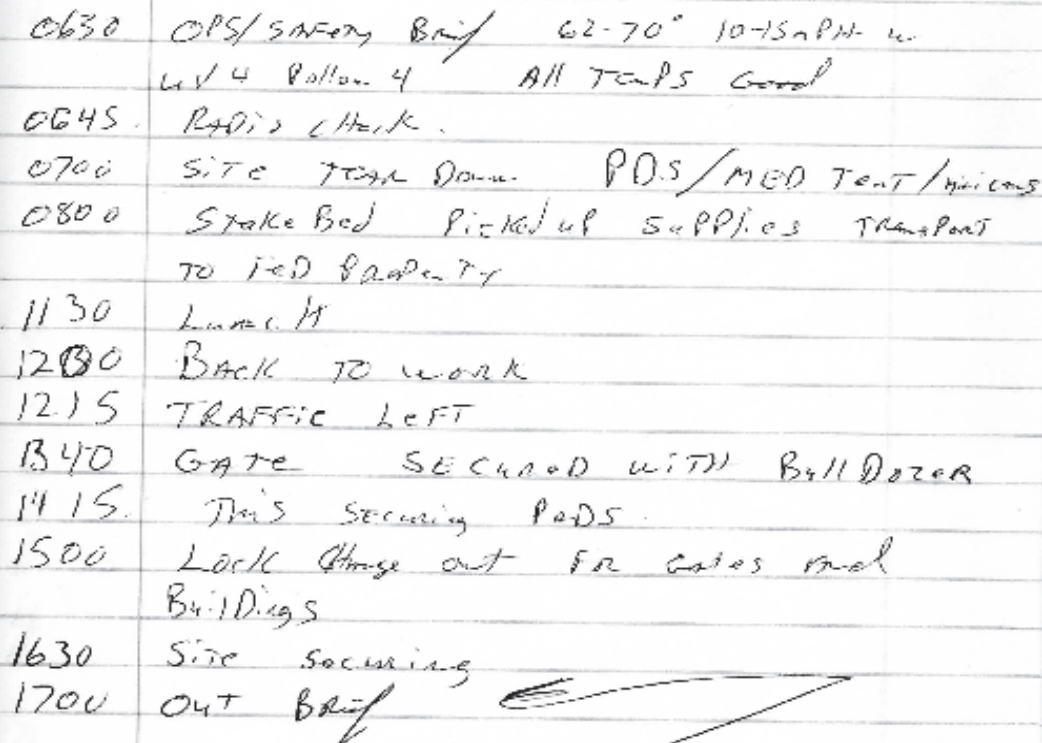 0630 OPS/SAFETY Brief 62-70° 10-15 MPH W
UV 4 Pollen 4 All Temps Good
0645. RADIO CHeck.
0700 SiTe TeAR Down PDS/MED TenT/
0800 STake Bed Picked up SuPPlies TRansPoRT
TO FeD PRopeRTy
1130 LuncH
1200 BAck TO woRk
1215 TRAFFic LeFT
1340 GATe SECureD WiTH BullDozeR
1415. Securing PODS.
1500 Lock Change out FoR Gates And
BuilDings
1630 SiTe Securing
1700 OuT BRief